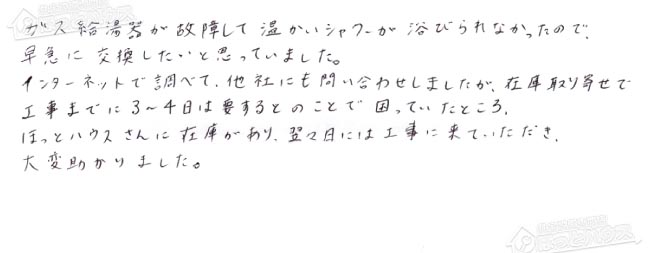 ガス給湯器が故障して温かいシャワーが浴びられなかったので、
早急に交換したいと思っていました。
インターネットで調べて、他社にも問い合わせしましたが、在庫取り寄せで
工事までに3～4日は要するとのことで困っていたところ、
ほっとハウスさんに在庫があり、翌々日には工事に来ていただき、
大変助かりました。
ほっとハウス